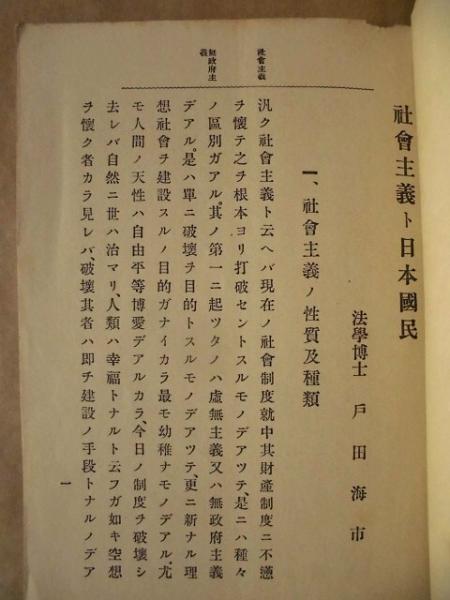 社會主義ト日本國民
法學博士 戸田海市
一、社會主義ノ性質及種類
社會主義
無政府主
義
汎ク社會主義ト云ヘバ現在ノ社會制度就中其財產制度ニ不懣
ヲ懷テ之ヲ根本ヨリ打破セントスルモノデアツテ、是ニハ種々
ノ區別ガアル。其ノ第一ニ起ツタノハ虛無主義又ハ無政府主義
デアル。是ハ單ニ破壞ヲ目的トスルモノデアツテ、更ニ新ナル理
想社會ヲ建設スルノ目的ガナイカラ最モ幼稚ナモノデアル、尤
モ人間ノ天性ハ自由平等博愛デアルカラ、今日ノ制度ヲ破壞シ
去レバ自然ニ世ハ治マリ、人類ハ幸福トナルト云フガ如キ空想
ヲ懷ク者カラ見レバ、破壞其者ハ卽チ建設ノ手段トナルノデア
一